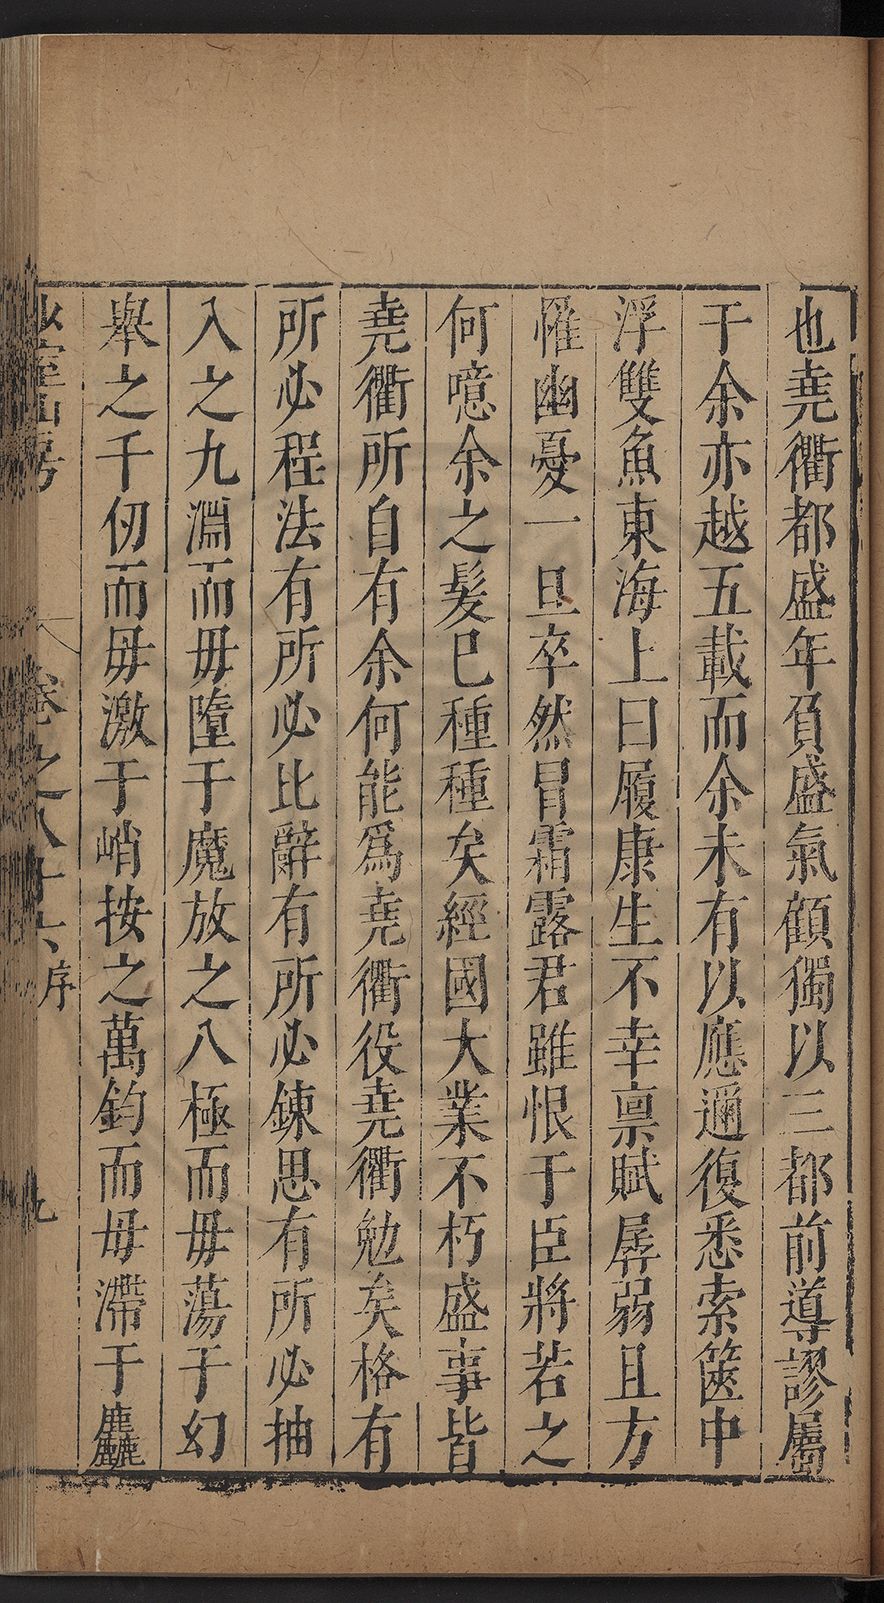 也堯衢都盛年負盛氣顧獨以三都前導謬屬
于余亦越五載而余未有以應邇復悉索篋中
浮雙魚東海上曰履康生不幸禀賦孱弱且方
罹幽憂一旦卒然冒霜露君雖恨于臣將若之
何噫余之髮巳種種矣經國大業不朽盛事皆
堯衢所自有余何能爲堯衢役堯衢勉矣格有
所必程法有所必比辭有所必鍊思有所必抽
入之九淵而毋墮于魔放之八極而毋蕩于幻
舉之千仞而毋激于峭按之萬鈞而毋滯于麤
少室山房
卷之八十六序
九